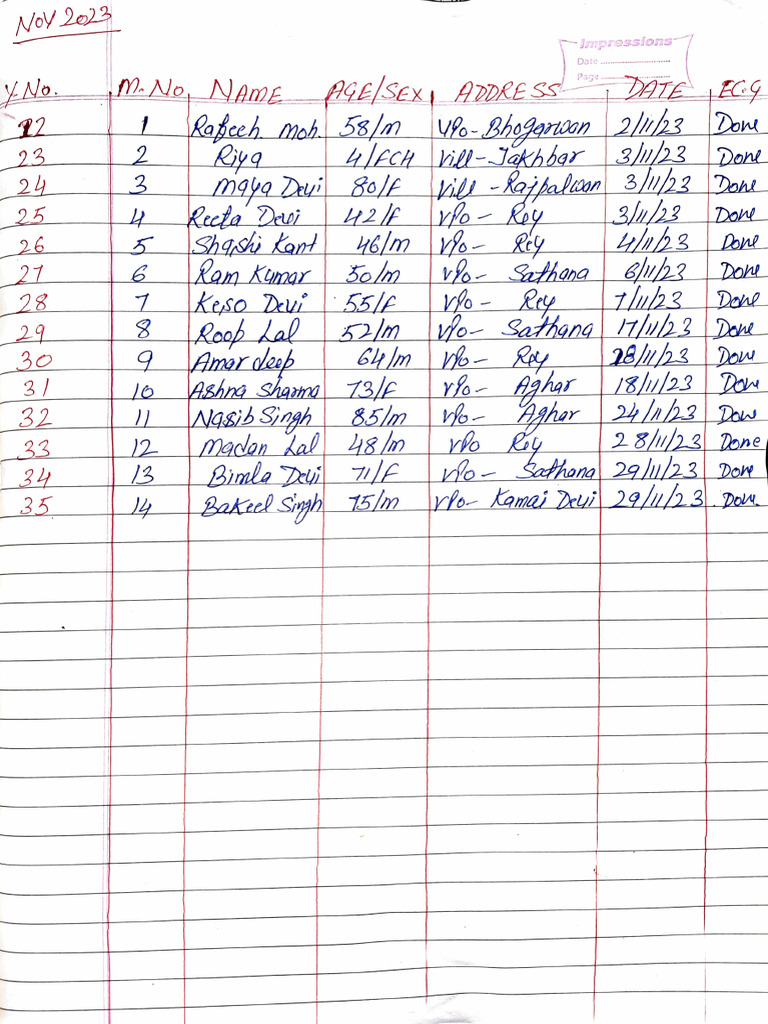 NOV 2023
Impressions
Date
Page
Y.No. M.No NAME AGE/SEX ADDRESS DATE EC.G
22 1 Rafeeh Moh. 58/m VPo-Bhogarwan 2/11/23 Done
23 2 Riya 4/FCH Vill-Jakhbar 3/11/23 Done
24 3 Maya Devi 80/F Vill-Rajpalwan 3/11/23 Done
25 4 Reeta Devi 42/F VPo- Rey 3/11/23 Done
26 5 Shashi Kant 46/m VPo- Rey 4/11/23 Done
27 6 Ram Kumar 50/m VPo- Sathana 6/11/23 Done
28 7 Keiso Devi 55/F VPo- Rey 7/11/23 Done
29 8 Roop Lal 52/m VPo- Sathana 17/11/23 Done
30 9 Amardeep 64/m VPo- Rey 18/11/23 Done
31 10 Ashna Sharma 73/F VPo- Aghar 18/11/23 Done
32 11 Nasib Singh 85/m VPo- Aghar 24/11/23 Done
33 12 Madan Lal 48/m VPo Rey 28/11/23 Done
34 13 Bimla Devi 71/F VPo- Sathana 29/11/23 Done
35 14 Bakeel Singh 75/m VPo- Kamal Devi 29/11/23 Done